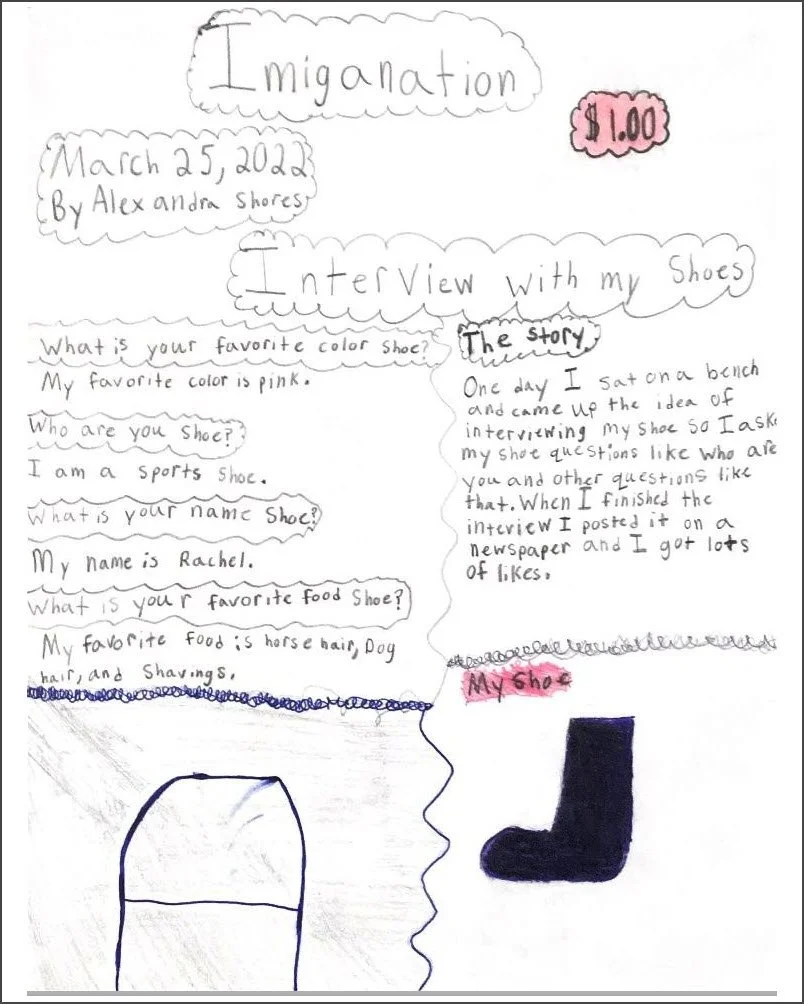 Imiganation
$1.00
March 25, 2022
By Alexandra Shores
Interview with my Shoes
What is your favorite color Shoe?
My favorite color is pink.
Who are you Shoe?
I am a sports Shoe.
What is your name Shoe?
My name is Rachel.
What is your favorite food Shoe?
My favorite food is horse hair, Dog
hair, and Shavings.
The Story
One day I sat on a bench
and came up the idea of
interviewing my shoe so I ask
my shoe questions like who are
you and other questions like
that. When I finished the
interview I posted it on a
newspaper and I got lots
of likes.
My Shoe